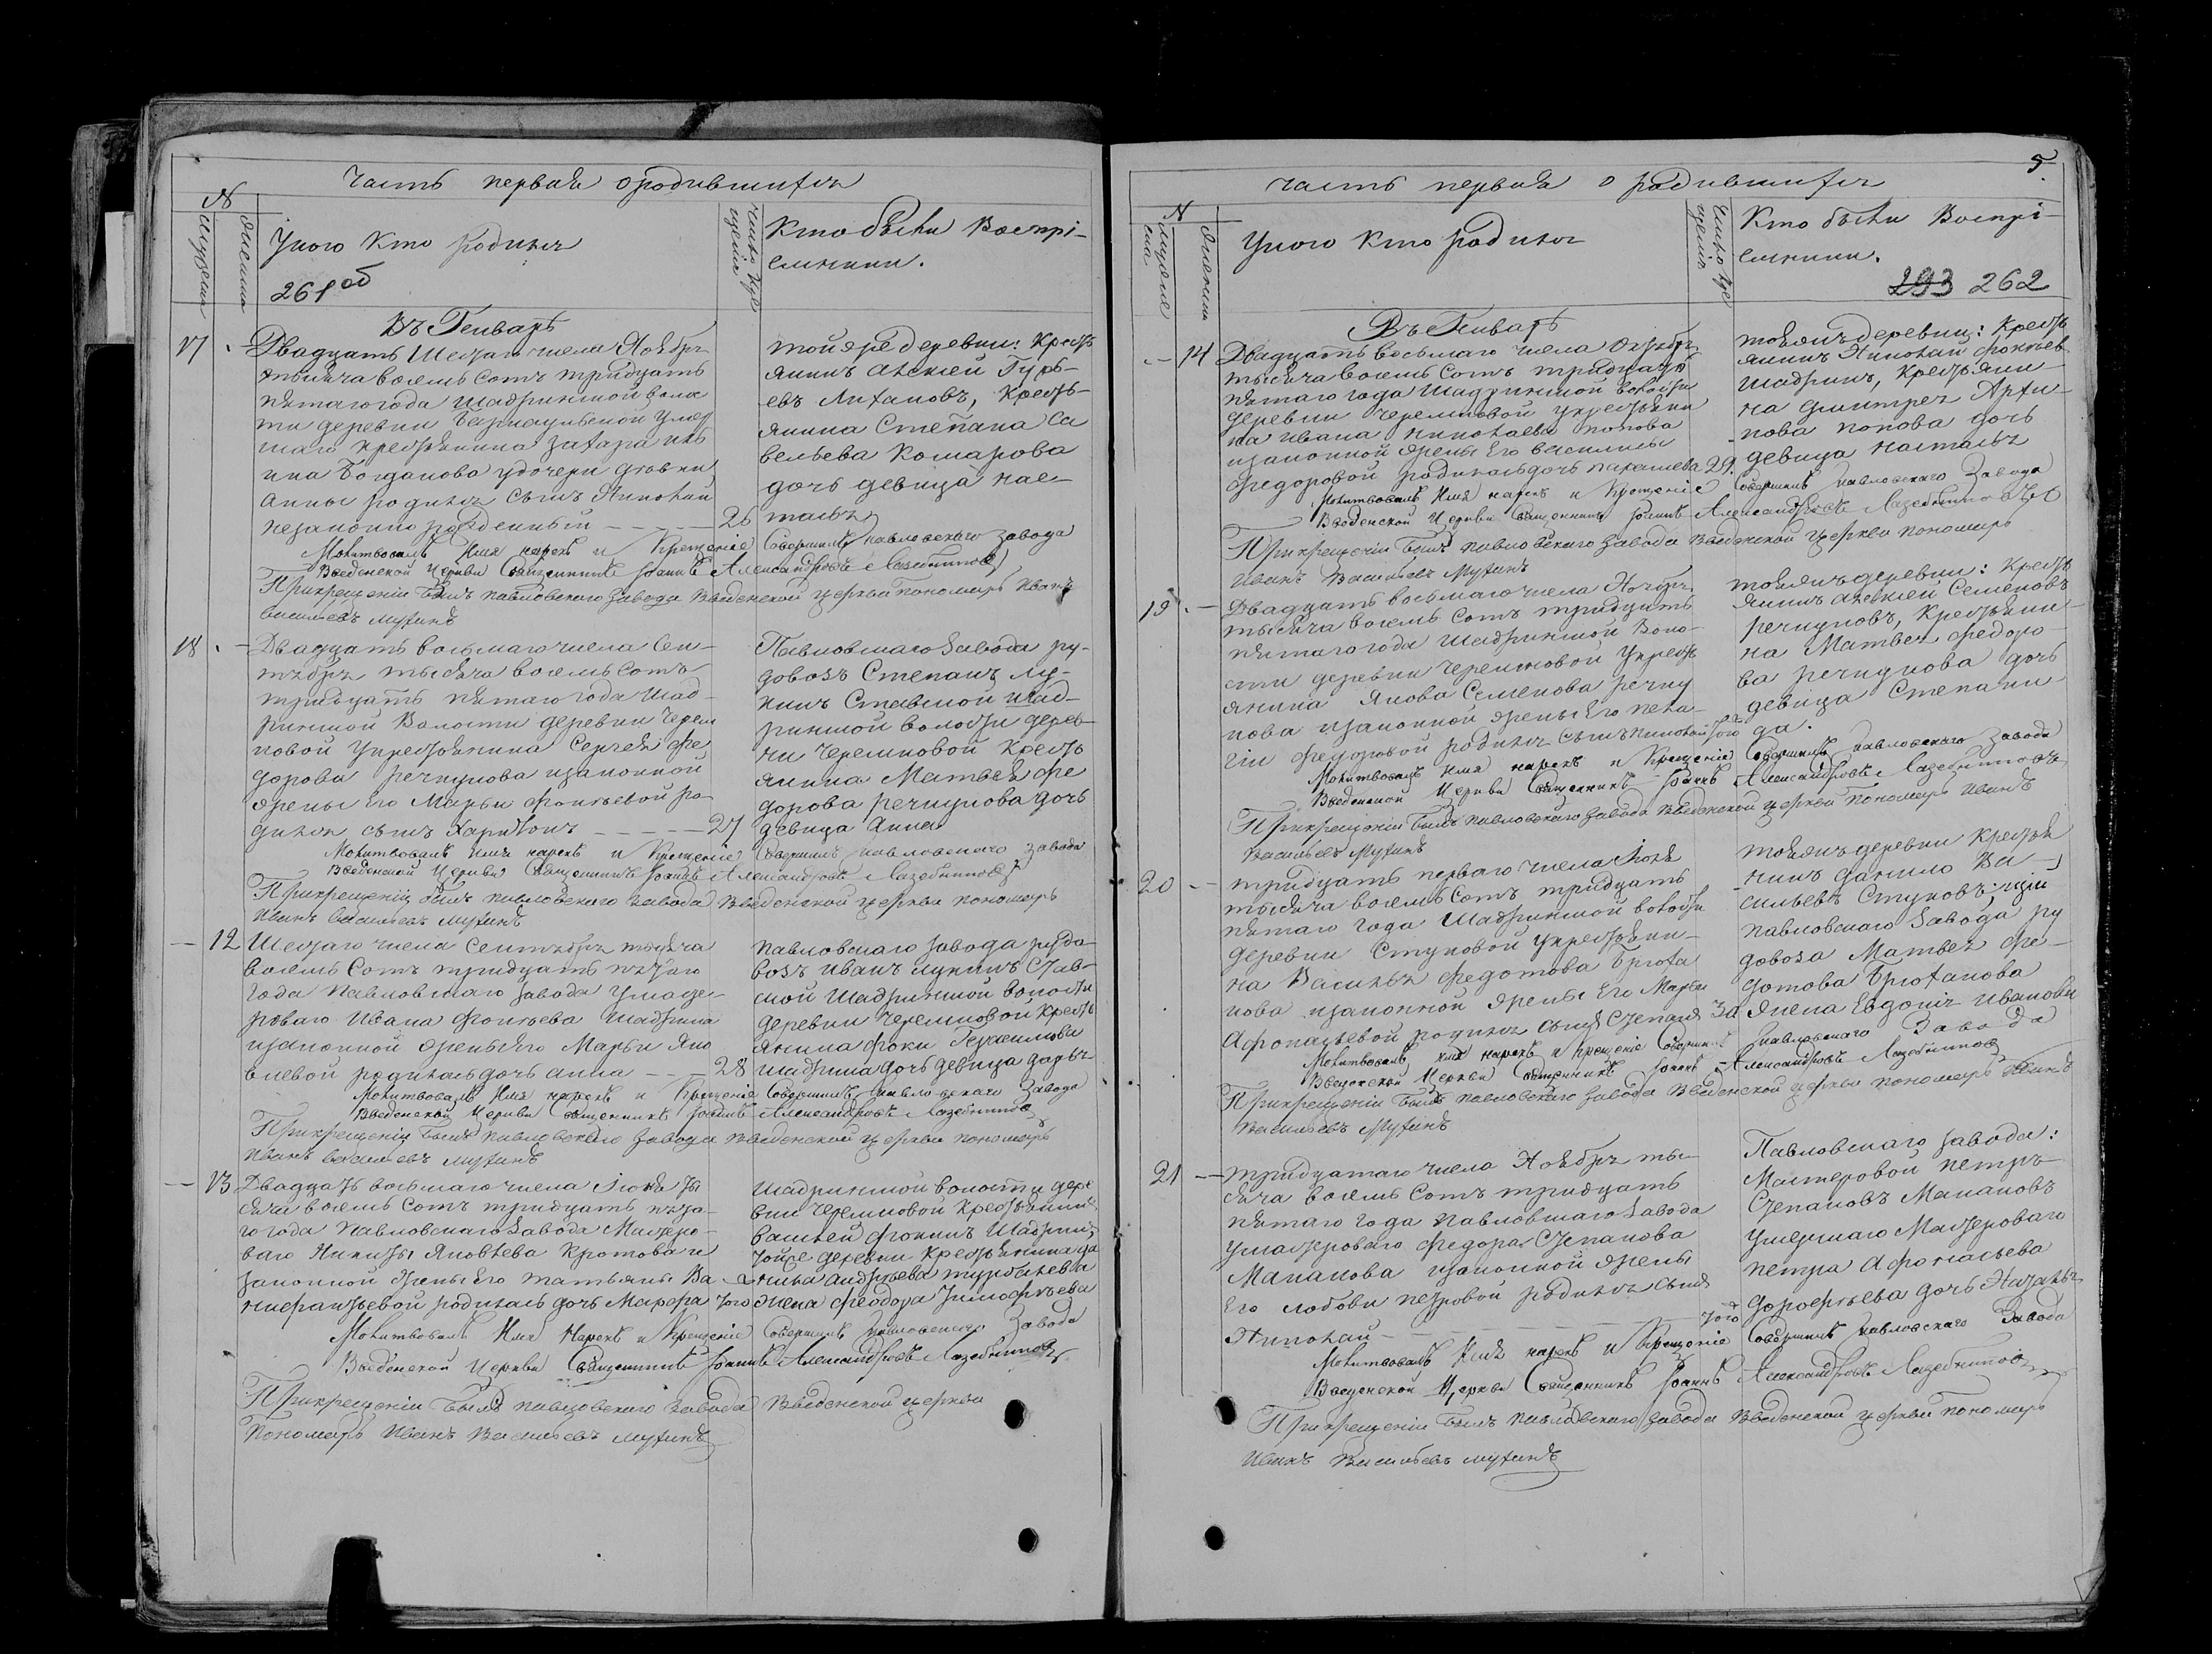 Часть первая о родившихся
N
мужеска
женска
У кого Кто Родился
261 об
Число Кре
щенія
Кто были Воспрі-
емники.
Въ Генварѣ
17 Двадцать Шестаго числа Ноября
тысяча восемь сотъ тридцать
пятаго года Шадринской воло
ти деревни Барнаульской умер
шаго крестьянина Захара
ина Богданова у дочери дѣвки
Анны родился сынъ Николай
незаконно рожденный 26
той же деревни: Кресть
янинъ Алексѣй Гурь-
евъ Лихановъ, Кресть-
янина Степана Са
вельева Комарова
дочь девица Нас-
тасья
Молитвовалъ Имя нарекъ и Крещеніе Совершилъ Павловскаго завода
Введенской Церкви Священникъ Іоаннъ Александровъ Лазебниковъ
При крещеніи былъ Павловскаго завода Введенской церкви пономарь Иванъ
Васильевъ Мухинъ
18 Двадцать восьмаго числа Сен-
тября тысяча восемь сотъ
тридцать пятаго года Шад-
ринской Волости деревни Черем
новой у крестьянина Сергея Фе
дорова Речкунова изаконной
жены Его Марьи Фокиевой ро
дился сынъ Харитонъ 27
Павловскаго завода ру-
довозъ Степанъ Лу-
кинъ Ставской Шад-
ринской волости дерев-
ни Черемновой Кресть
янина Матвея Фе
дорова Речкунова дочь
девица Анна
Молитвовалъ имя нарекъ и Крещеніе Совершилъ Павловскаго завода
Введенской Церкви Священникъ Іоаннъ Александровъ Лазебниковъ
При крещеніи былъ Павловскаго завода Введенской церкви пономарь
Иванъ Васильевъ Мухинъ
12 Шестаго числа Сентября тысяча
восемь сотъ тридцать пятаго
года Павловскаго завода у масте-
роваго Ивана Фокиева Шадрина
изаконной жены Его Марьи Яко
влевой родилась дочь Анна 28
Павловскаго завода рудо
возъ Иванъ Лукинъ Став-
ской Шадринской волости
деревни Черемновой кресть
янина Фоки Герасимова
Шадрина дочь девица Дарья
Молитвовалъ Имя нарекъ и Крещеніе Совершилъ Павловскаго завода
Введенской Церкви Священникъ Іоаннъ Александровъ Лазебниковъ
При крещеніи былъ Павловскаго завода Введенской церкви пономарь
Иванъ Васильевъ Мухинъ
13 Двадцать восьмаго числа Іюня ты
сяча восемь сотъ тридцать пята-
го года Павловскаго завода Мастеро-
ваго Никиты Яковлева Кротова и
законной жены Его Татьяны Ва
нифантьевой родилась дочь Марфа того
Шадринской волости дере
вни Черемновой Крестьянинъ
Василей Фокинъ Шадринъ
той же деревни Крестьянина Да
нила Андреева Турбаева
жена Феодора Тимофѣева
Молитвовалъ Имя Нарекъ и Крещеніе Совершилъ Павловскаго Завода
Введенской Церкви Священникъ Іоаннъ Александровъ Лазебниковъ
При крещеніи былъ Павловскаго завода Введенской церкви
Пономарь Иванъ Васильевъ Мухинъ
5
часть первая о родившихся
N
мужеска
женска
У кого Кто родился
Число Кре
щенія
Кто были Воспрі-
емники.
293 262
Въ Генварѣ
14 Двадцать восьмаго числа Октября
тысяча восемь сотъ тридцать
пятаго года Шадринской волости
деревни Черемновой у крестьяни
на Ивана Николаева Попова
изаконной жены Его Василисы
Федоровой родилась дочь 29
тоея жъ деревни: Кресть
янинъ Николай Фокиев
Шадринъ, крестьяни-
на Дмитрея
пова Попова дочь
девица Настасья
Молитвовалъ Имя нарекъ и Крещеніе Совершилъ Павловскаго Завода
Введенской Церкви Священникъ Іоаннъ Александровъ Лазебниковъ
При крещеніи былъ Павловскаго завода Введенской церкви пономарь
Иванъ Васильевъ Мухинъ
19 Двадцать восьмаго числа Ноября
тысяча восемь сотъ тридцать
пятаго года Шадринской Воло-
сти деревни Черемновой у кресть
янина Якова Семенова Речку
нова изаконной жены Его Пела-
гіи Федоровой родился сынъ Николай того
тоея жъ деревни: Кресть
янинъ Алексѣй Семеновъ
Речкуновъ, Крестьяни-
на Матвея Федоро-
ва Речкунова дочь
девица Степани
да.
Молитвовалъ Имя нарекъ и Крещеніе Совершилъ Павловскаго завода
Введенской Церкви Священникъ Іоаннъ Александровъ Лазебниковъ
При крещеніи былъ Павловскаго завода Введенской церкви Пономарь Иванъ
Васильевъ Мухинъ
20 Тридцать перваго числа Іюля
тысяча восемь сотъ тридцать
пятаго года Шадринской волости
деревни Стуковой у крестьяни-
на Василья Федотова Брюха
нова изаконной жены Его Марьи
Афонасьевой родился сынъ Степанъ 30
тоея жъ деревни крестья
нинъ Данило Ва-
сильевъ Стуковъ,
Павловскаго завода ру
довоза Матвея Фе-
дотова Брюханова
жена Евдокія Иванова
Молитвовалъ имя нарекъ и крещеніе Совершилъ Павловскаго Завода
Введенской Церкви Священникъ Іоаннъ Александровъ Лазебниковъ
При крещеніи былъ Павловскаго завода Введенской церкви пономарь Иванъ
Васильевъ Мухинъ
21 Тридцатаго числа Ноября ты-
сяча восемь сотъ тридцать
пятаго года Павловскаго завода
у мастероваго Федора Степанова
Маканова изаконной жены
Его Любови Петровой родился сынъ
Николай того
Павловскаго завода:
Мастеровой Петръ
Степановъ Макановъ
умершаго Мастероваго
Петра Афонасьева
Дорофѣева дочь Наталья
Молитвовалъ Имя нарекъ и Крещеніе Совершилъ Павловскаго Завода
Введенской Церкви Священникъ Іоаннъ Александровъ Лазебниковъ
При крещеніи былъ Павловскаго завода Введенской церкви пономарь
Иванъ Васильевъ Мухинъ